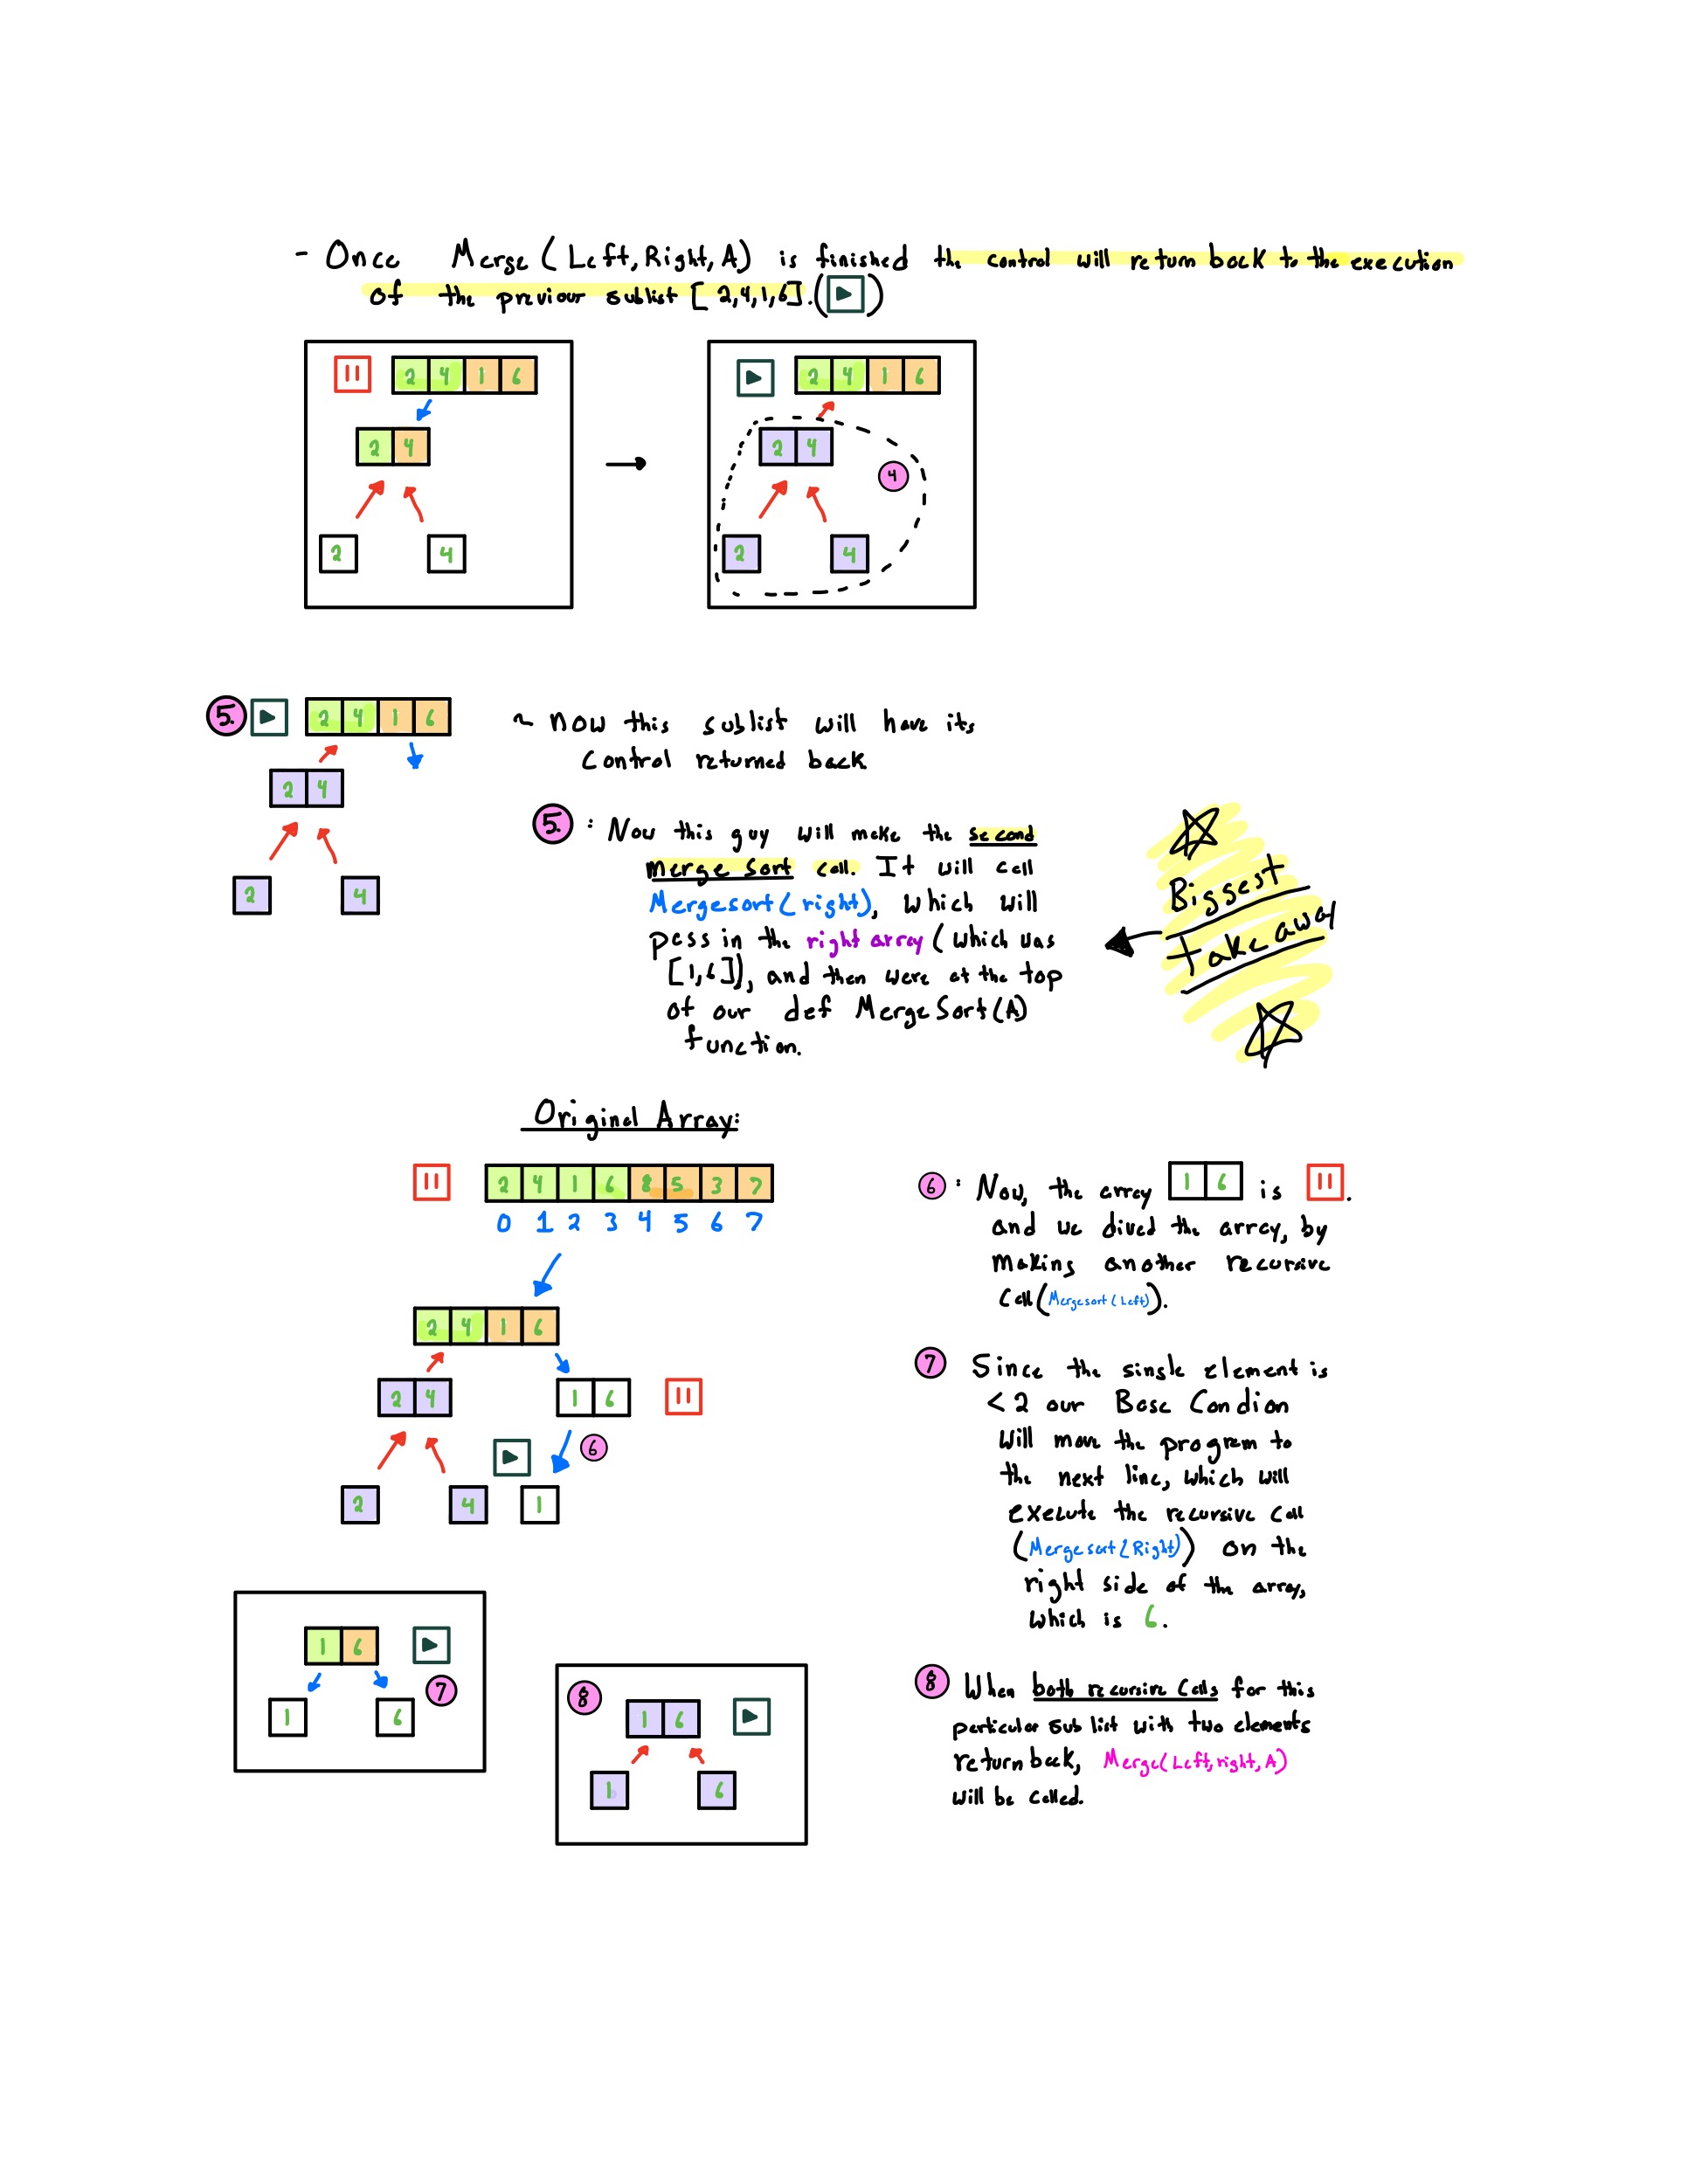 - Once Merge (Left, Right, A) is finished the control will return back to the execution
of the previous sublist [2,4,1,6]. ( )
2 4 1 6
2 4
2 4
2 4 1 6
2 4
4
2 4
5. 2 4 1 6
2 4
2 4
~ Now this sublist will have its
control returned back
5. : Now this guy will make the second
merge sort call. It will call
Mergesort(right), which will
pass in the right array (which was
[1,6]), and then were at the top
of our def MergeSort(A)
function.
Biggest
Takeaway
Original Array:
2 4 1 6 8 5 3 7
0 1 2 3 4 5 6 7
2 4 1 6
2 4 1 6
6
2 4 1
6 : Now, the array 1 6 is .
and we dived the array, by
making another recursive
call(Mergesort(Left)).
7 Since the single element is
<2 our Base Condion
will move the program to
the next line, which will
execute the recursive call
(Mergesort(Right)) on the
right side of the array,
which is 6.
1 6
7
1 6
8 1 6
1 6
8 When both recursive calls for this
particular sub list with two elements
return back, Merge(Left,right,A)
will be called.